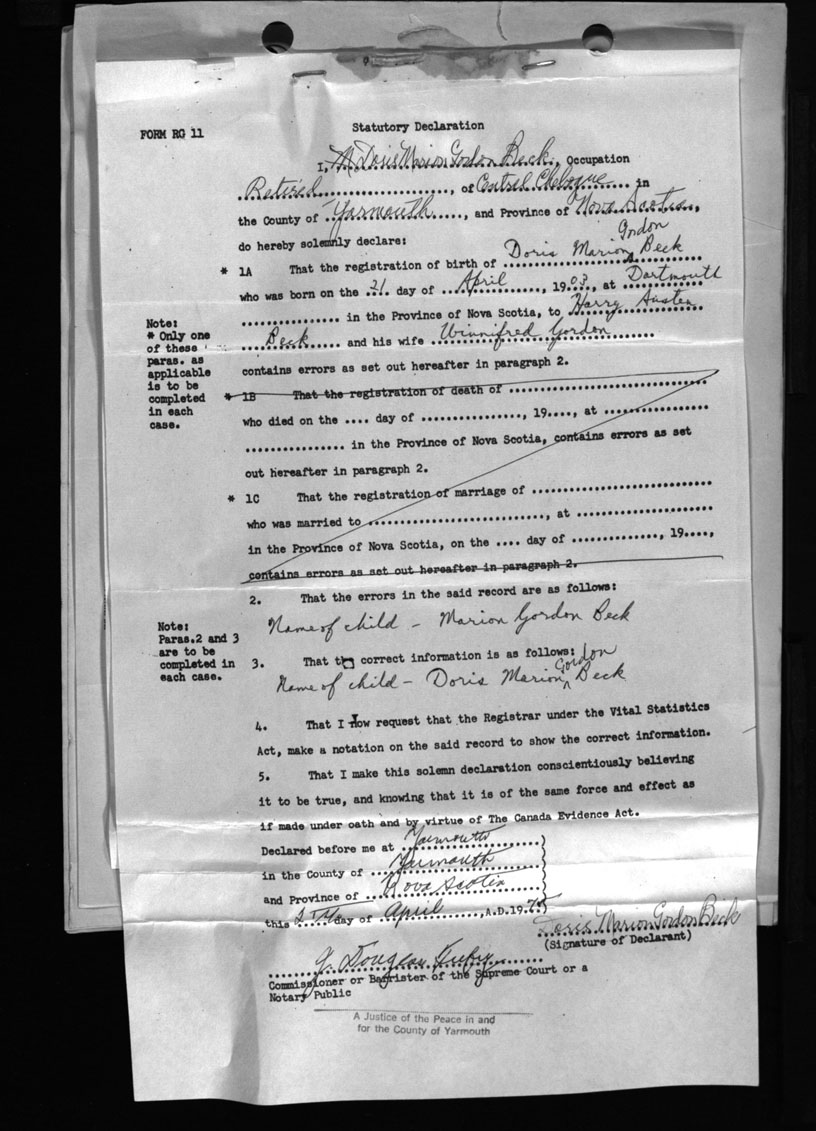 FORM RG 11
Statutory Declaration
I, Doris Marion Gordon Beck, Occupation
Retired, of Central Chebogue in
the County of Yarmouth, and Province of Nova Scotia,
do hereby solemnly declare:
Gordon
* 1A That the registration of birth of Doris Marion Beck
who was born on the 21 day of April, 1903, at Dartmouth
in the Province of Nova Scotia, to Harry Austen
Beck and his wife Winnifred Gordon
contains errors as set out hereafter in paragraph 2.
Note:
* Only one
of these
paras. as
applicable
is to be
completed
in each
case.
* 1B That the registration of death of
who died on the .... day of ................, 19...., at
in the Province of Nova Scotia, contains errors as set
out hereafter in paragraph 2.
* 1C That the registration of marriage of
who was married to ............................, at
in the Province of Nova Scotia, on the .... day of .............., 19....,
contains errors as set out hereafter in paragraph 2.
2. That the errors in the said record are as follows:
Name of child - Marion Gordon Beck
Note:
Paras.2 and 3
are to be
completed in
each case.
3. That the correct information is as follows:
Gordon
Name of child - Doris Marion Beck
4. That I now request that the Registrar under the Vital Statistics
Act, make a notation on the said record to show the correct information.
5. That I make this solemn declaration conscientiously believing
it to be true, and knowing that it is of the same force and effect as
if made under oath and by virtue of The Canada Evidence Act.
Declared before me at Yarmouth
in the County of Yarmouth
and Province of Nova Scotia
this day of April, A.D.197
Doris Marion Gordon Beck
(Signature of Declarant)
J. Douglas
Commissioner or Barrister of the Supreme Court or a
Notary Public
A Justice of the Peace in and
for the County of Yarmouth